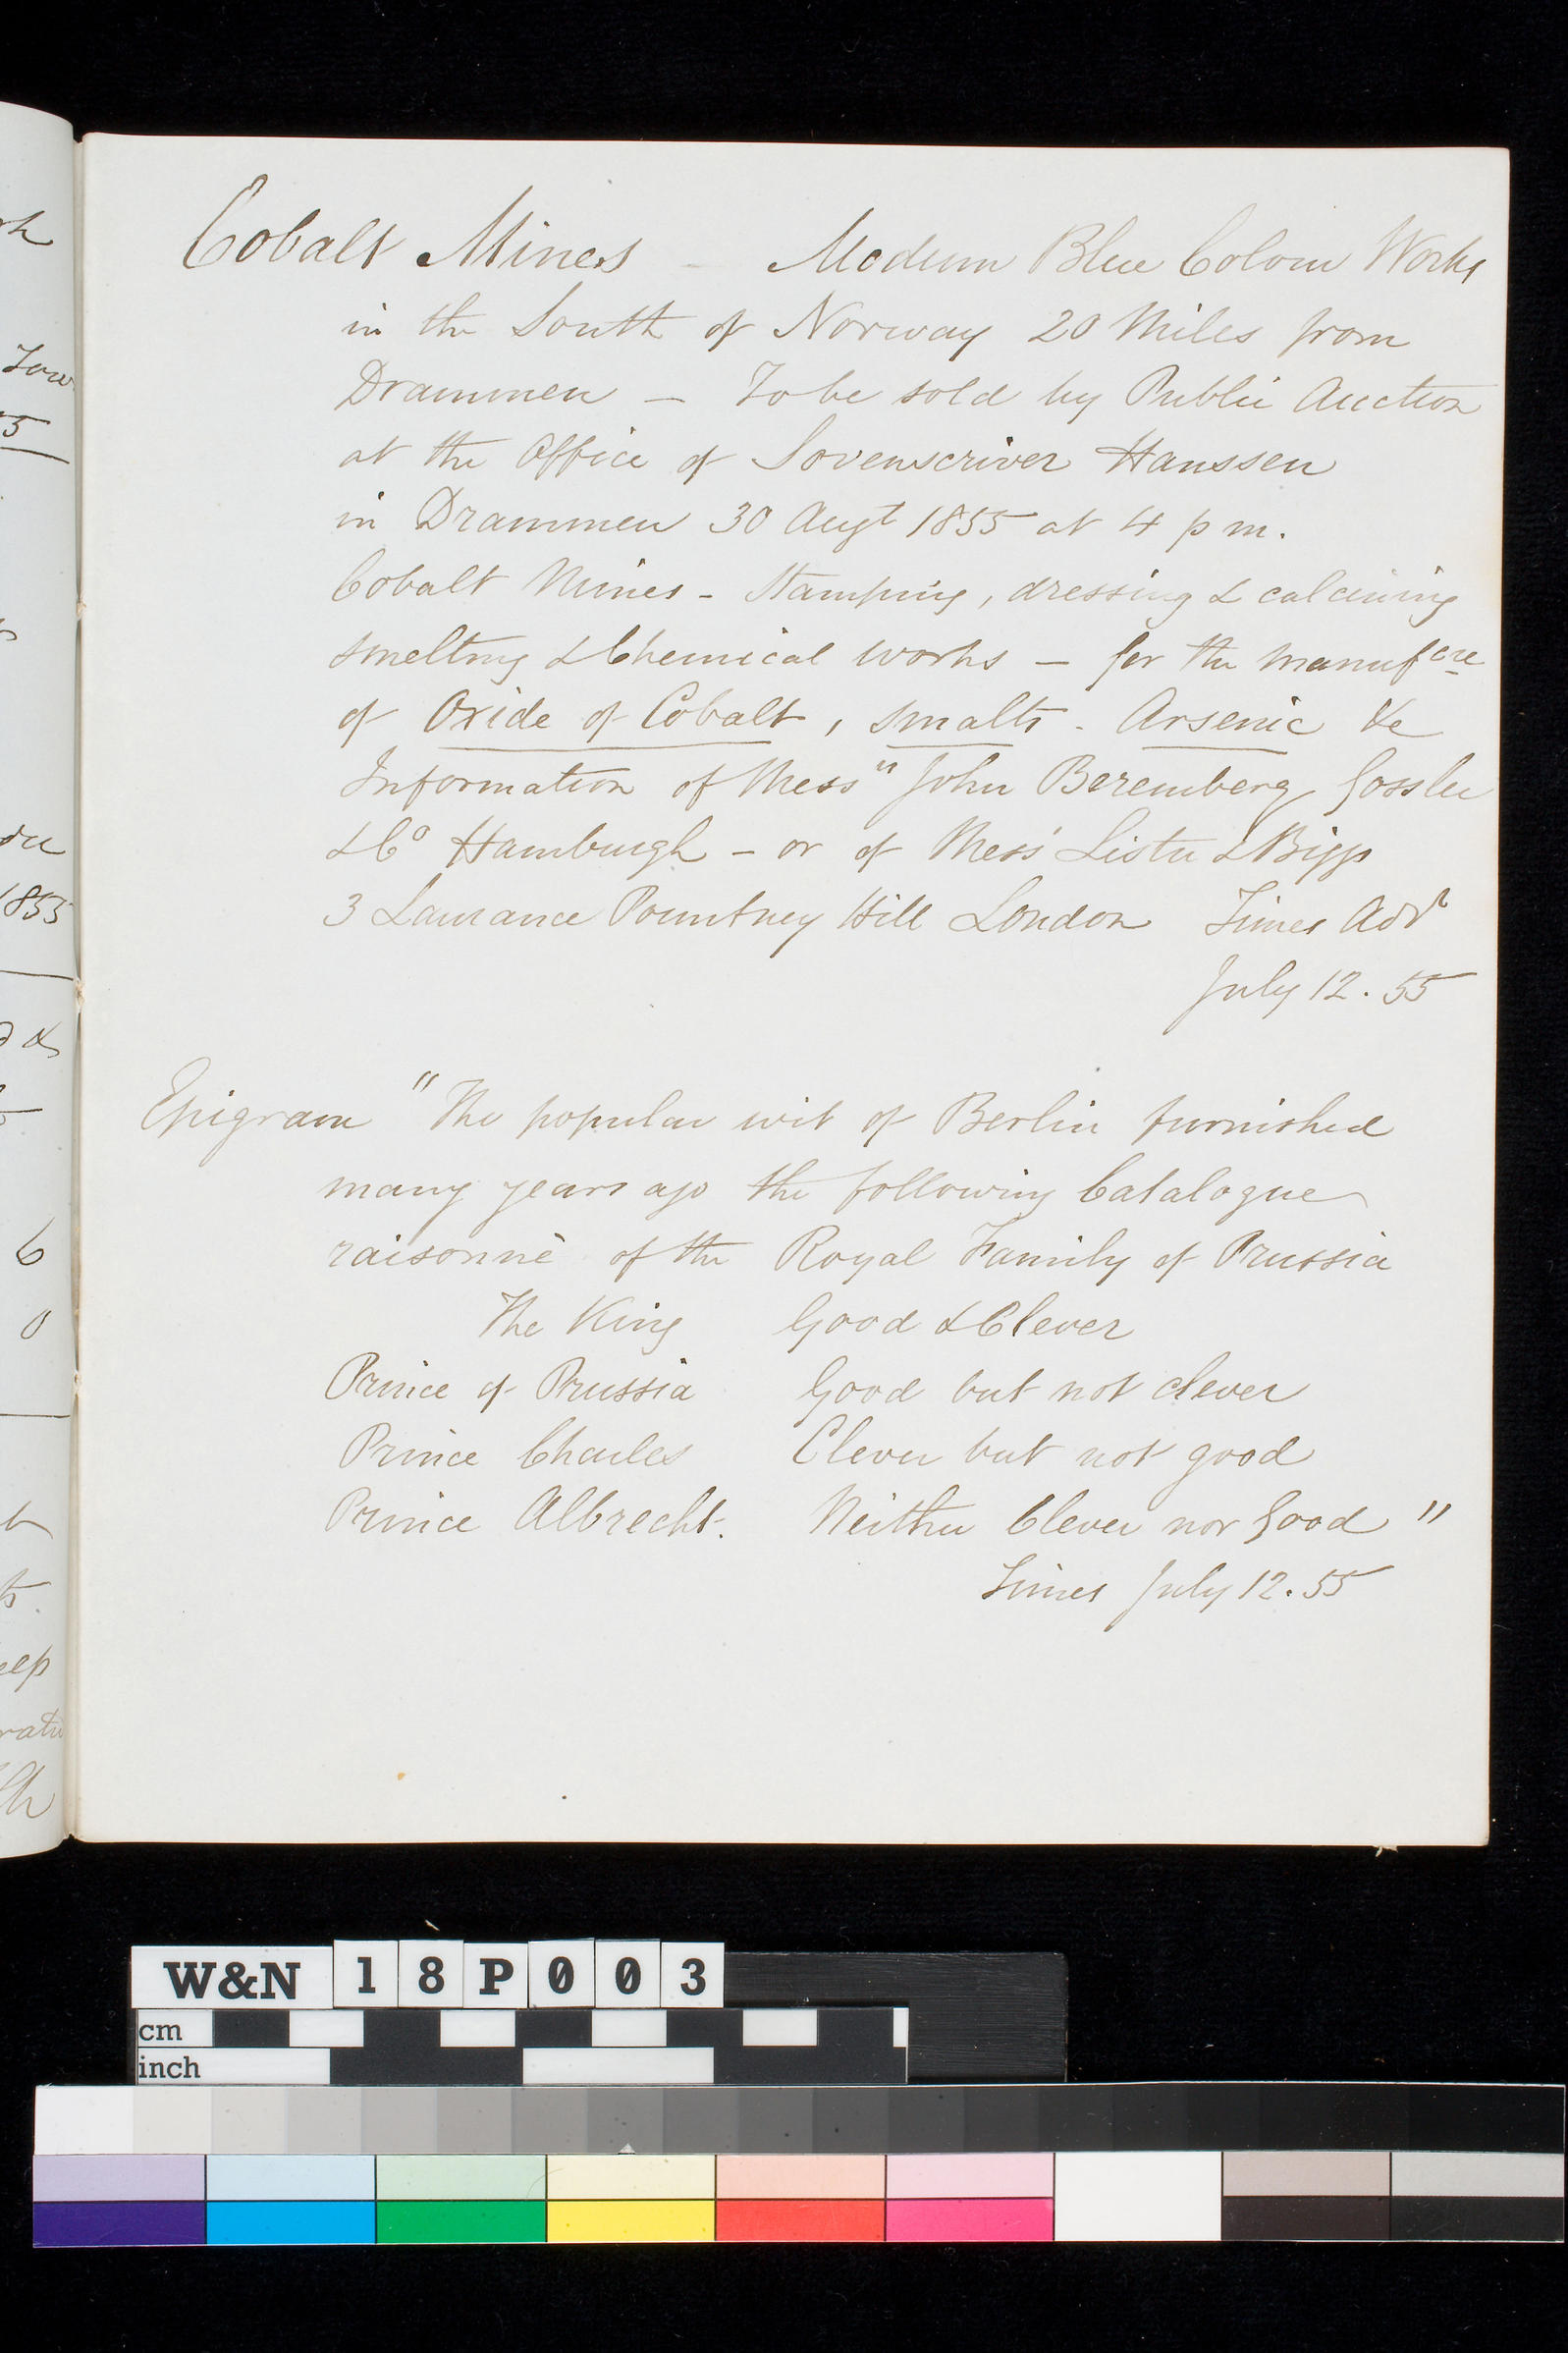 Cobalt Mines – Modum Blue Colour Works
in the South of Norway 20 Miles from
Drammen – To be sold by Public Auction
at the Office of Sovenscriver Hanssen
in Drammen 30 Augt 1855 at 4 p m.
Cobalt Mines - Stamping, dressing & calcining
smelting & Chemical works – for the manufcre
of Oxide of Cobalt, smalts - Arsenic &c
Information of Messrs John Beremberg Gossler
& Co Hamburgh – or of Messrs Lister & Biggs
3 Laurance Pountney Hill London Times Advt
July 12. 55
Epigram "The popular wit of Berlin furnished
many years ago the following Catalogue
raisonnè of the Royal Family of Prussia
The King Good & Clever
Prince of Prussia Good but not clever
Prince Charles Clever but not good
Prince Albrecht. Neither Clever nor Good"
Times July 12. 55
Tow
5
1855
6
0
eep
W&N 18P003
cm
inch